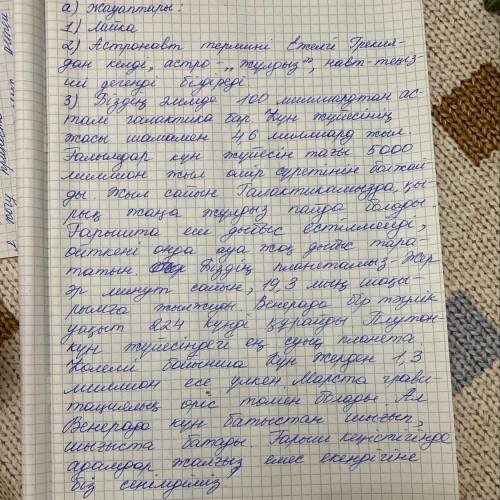 а) Жауаптары:
1) Лайка
2) Астронавт термині Ежелгі Грекия-
дан келді, астро-„жұлдыз”, навт-теңіз-
ші дегенді білдіреді
3) Біздің әлемде 100 миллиардтан ас-
там галактика бар. Күн жүйесінің
жасы шамамен 4,6 миллиард жыл.
Ғалымдар күн жүйесін тағы 5000
миллион жыл өмір сүретінін болжай
ды. Жыл сайын Галактикамызда, қы
рық жаңа жұлдыз пайда болады
Ғарышта еш дыбыс естілмейді,
өйткені онда ауа жоқ дыбыс тара-
татын. Біздің планетамыз - Жер
әр минут сайын, 19,3 мың шақы-
рымға жылжиды. Венерада бір тәулік
уақыт 224 күнді құрайды. Плутон-
күн жүйесіндегі ең суық планета.
Көлемі бойынша Күн Жерден 1,3
миллион есе үлкен. Марста грави-
тациялық өріс төмен болады. Ал
Венерада күн батыстан шығып,
шығыста батады. Ғарыш кеңістігінде
адамдар жалғыз емес екендігіне
біз сенімдіміз